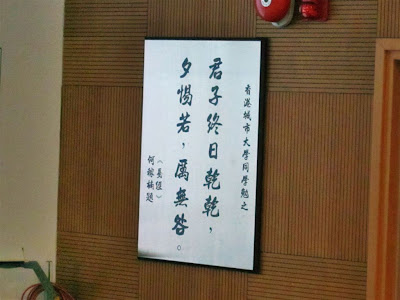 香港城市大學同學勉之
君子終日乾乾，
夕惕若，厲無咎。
（易經）